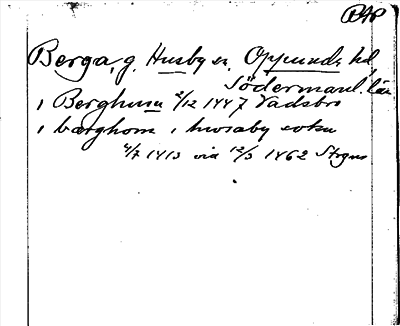 Berga, g. Husby sn. Oppunda hd,
Södermanl. län
i Berghum 2/12 1447 Vadsbro
i bærghom i hwsaby sokn
4/7 1413 vid 12/5 1462 Strgns